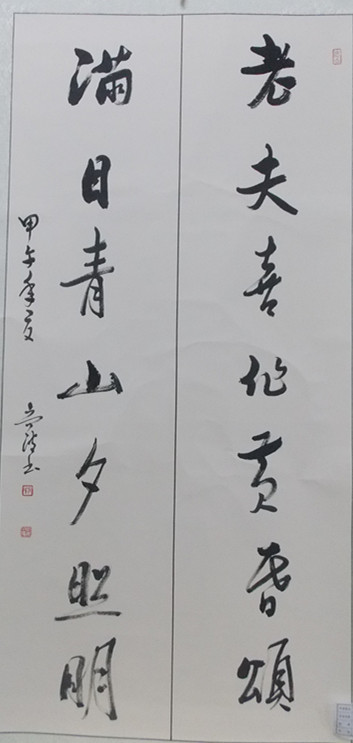 老夫喜作黄昏頌
满目青山夕照明
甲午年夏
书